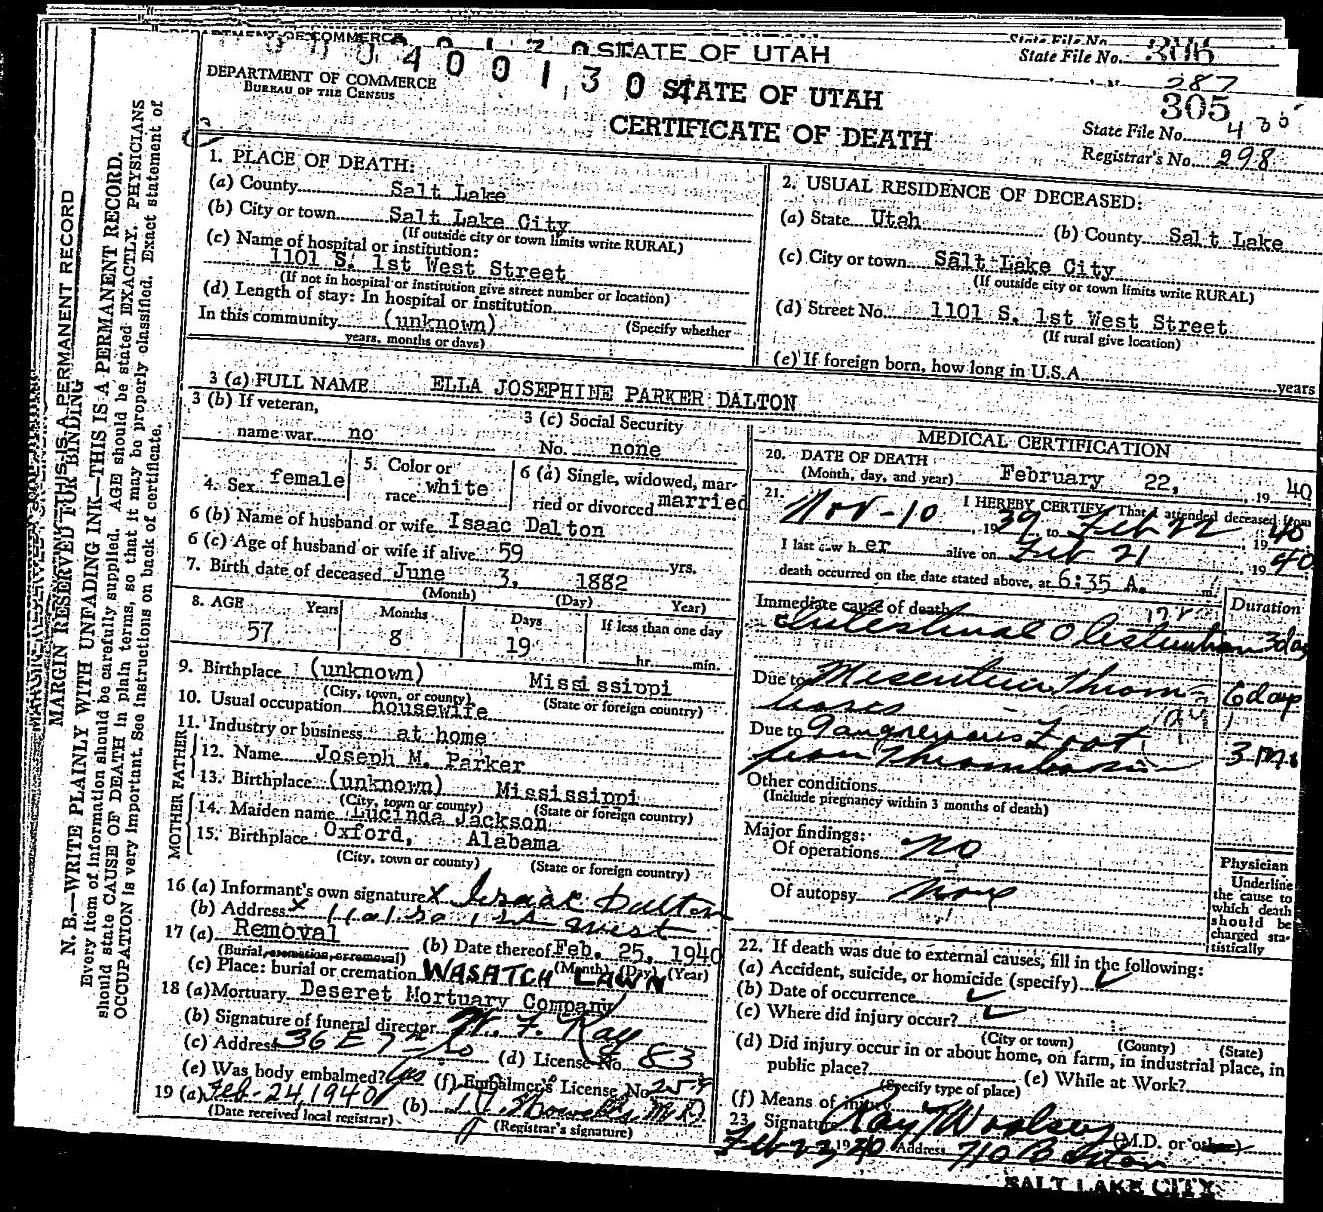 STATE OF UTAH
State File No. 306
287
0 0 0 4 0 0 1 3 0 4
DEPARTMENT OF COMMERCE
BUREAU OF THE CENSUS
STATE OF UTAH
CERTIFICATE OF DEATH
305
State File No. 430
Registrar's No. 298
MARGIN RESERVED FOR BINDING
N. B.—WRITE PLAINLY WITH UNFADING INK—THIS IS A PERMANENT RECORD.
Every item of information should be carefully supplied. AGE should be stated EXACTLY. PHYSICIANS
should state CAUSE OF DEATH in plain terms, so that it may be properly classified. Exact statement of
OCCUPATION is very important. See instructions on back of certificate.
1. PLACE OF DEATH:
(a) County Salt Lake
(b) City or town Salt Lake City
(If outside city or town limits write RURAL)
(c) Name of hospital or institution:
1101 S. 1st West Street
(If not in hospital or institution give street number or location)
(d) Length of stay: In hospital or institution
In this community (unknown) (Specify whether
years, months or days)
2. USUAL RESIDENCE OF DECEASED:
(a) State Utah (b) County Salt Lake
(c) City or town Salt Lake City
(If outside city or town limits write RURAL)
(d) Street No. 1101 S. 1st West Street
(If rural give location)
(e) If foreign born, how long in U.S.A. years
3 (a) FULL NAME ELLA JOSEPHINE PARKER DALTON
3 (b) If veteran,
name war no
3 (c) Social Security
No. none
4. Sex female
5. Color or
race white
6 (a) Single, widowed, mar-
ried or divorced married
6 (b) Name of husband or wife Isaac Dalton
6 (c) Age of husband or wife if alive 59 yrs.
7. Birth date of deceased June 3, 1882
(Month) (Day) Year)
8. AGE Years Months Days If less than one day
57 8 19 hr. min.
9. Birthplace (unknown) Mississippi
(City, town, or county) (State or foreign country)
10. Usual occupation housewife
11. Industry or business at home
FATHER
12. Name Joseph M. Parker
13. Birthplace (unknown) Mississippi
(City, town or county) (State or foreign country)
MOTHER
14. Maiden name Lucinda Jackson
15. Birthplace Oxford, Alabama
(City, town or county) (State or foreign country)
16 (a) Informant's own signature x Isaac Dalton
(b) Address x 1101 So 1st West
17 (a) Removal (b) Date thereof Feb. 25, 1940
(Burial, cremation, or removal) (Month) (Day) (Year)
(c) Place: burial or cremation WASATCH LAWN
18 (a) Mortuary Deseret Mortuary Company
(b) Signature of funeral director W. F. Kay
(c) Address 36 E 7th So (d) License No. 83
(e) Was body embalmed? Yes (f) Embalmer's License No.
19 (a) Feb-24, 1940 (b) M.D.
(Date received local registrar) (Registrar's signature)
MEDICAL CERTIFICATION
20. DATE OF DEATH
(Month, day, and year) February 22, 19 40
21. I HEREBY CERTIFY, That I attended deceased from
Nov-10, 19 39 to Feb 22, 19 40
I last saw her alive on Feb 21 19 40
death occurred on the date stated above, at 6:35 A. m.
Immediate cause of death Duration
Intestinal Obstruction 3 days
Due to Mesenteric Throm- 6 days
boses
Due to Gangrenous Foot 3 Mo
from Thrombosis
Other conditions
(Include pregnancy within 3 months of death)
Major findings:
Of operations no
Of autopsy none
Physician
Underline
the cause to
which death
should be
charged sta-
tistically
22. If death was due to external causes, fill in the following:
(a) Accident, suicide, or homicide (specify)
(b) Date of occurrence
(c) Where did injury occur?
(City or town) (County) (State)
(d) Did injury occur in or about home, on farm, in industrial place, in
public place? (e) While at Work?
(Specify type of place)
(f) Means of injury
23. Signature Ray T Woolsey (M.D. or other)
Feb 23, 1940 Address 710 Boston
SALT LAKE CITY